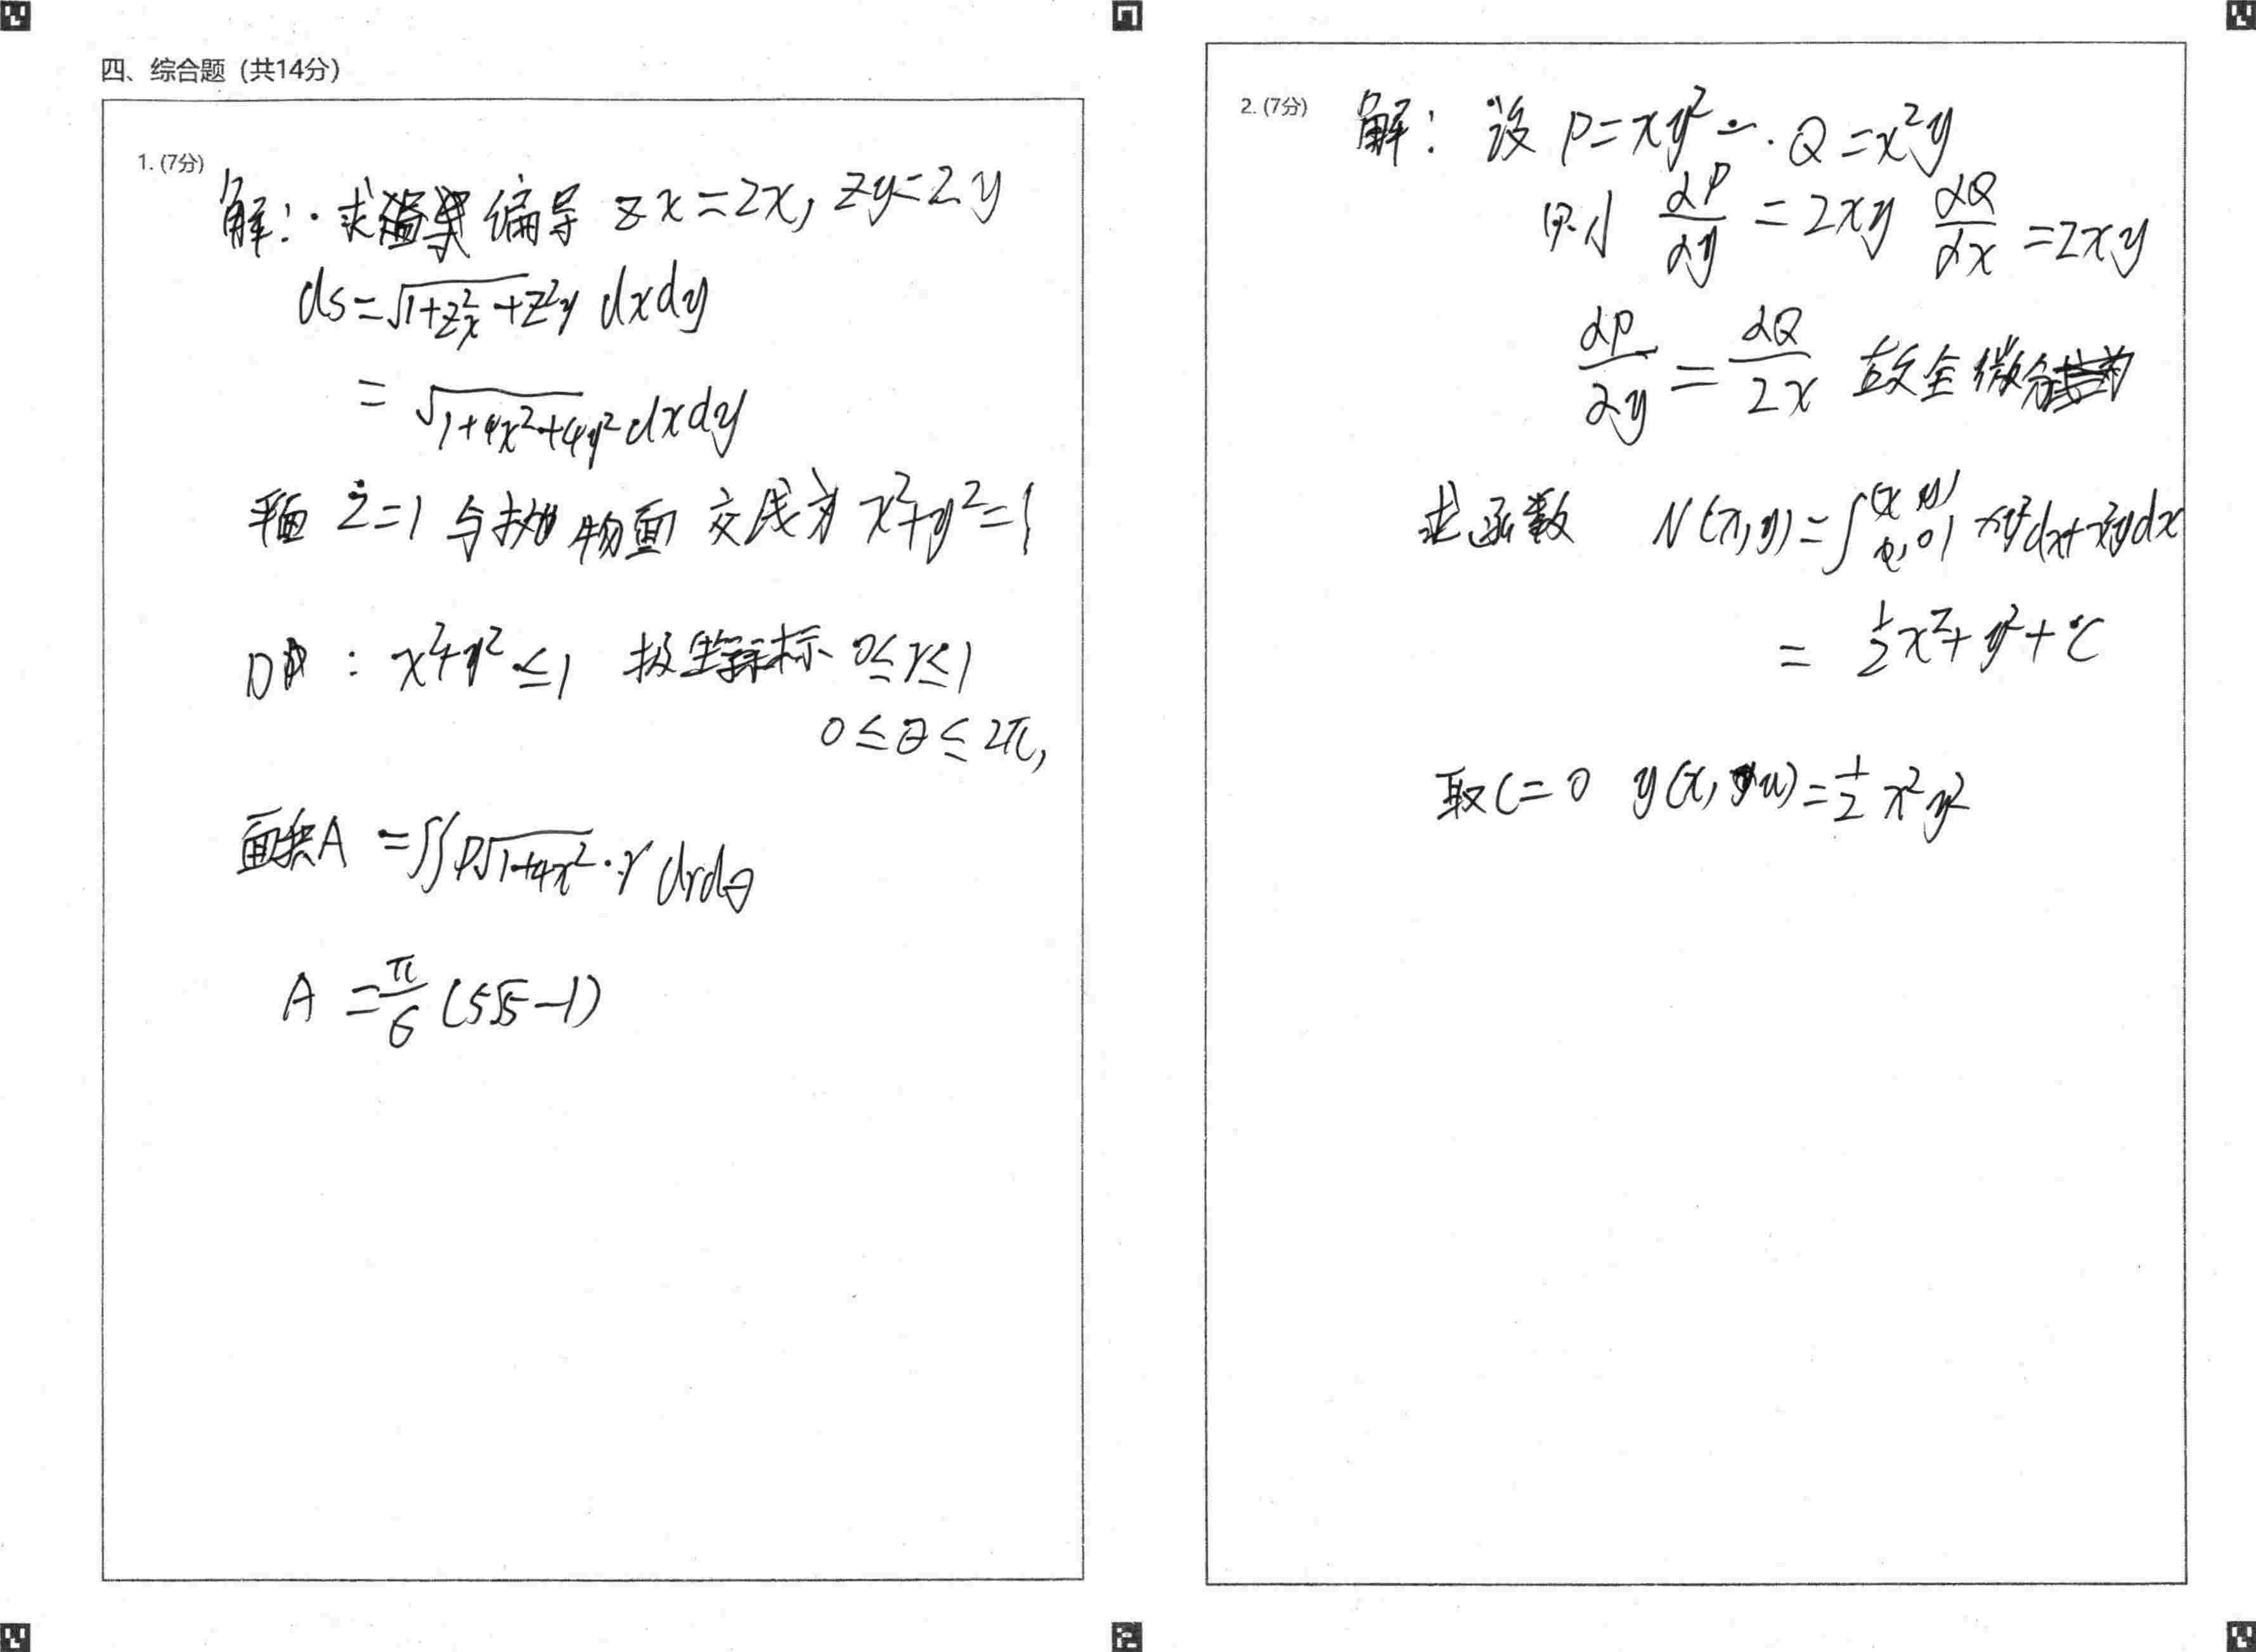 四、综合题（共14分）
1. (7分)
解：求偏导 zx=2x, zy=2y
ds=√1+z²x+z²y dxdy
= √1+4x²+4y² dxdy
平面 z=1 与抛物面 交线为 x²+y²=1
D : x²+y²≤1 极坐标 0≤r≤1
0≤θ≤2π,
面积A =∬D√1+4x²·r drdθ
A =π/6 (5√5-1)
2. (7分)
解：设 P=xy² . Q=x²y
则 ∂P/∂y = 2xy ∂Q/∂x =2xy
∂P/∂y = ∂Q/∂x 故全微分
求函数 N(x,y)=∫(x,y)(0,0) xy²dx+x²ydx
= 1/2 x²+y²+C
取C=0 y(x,u)=1/2 x²y²